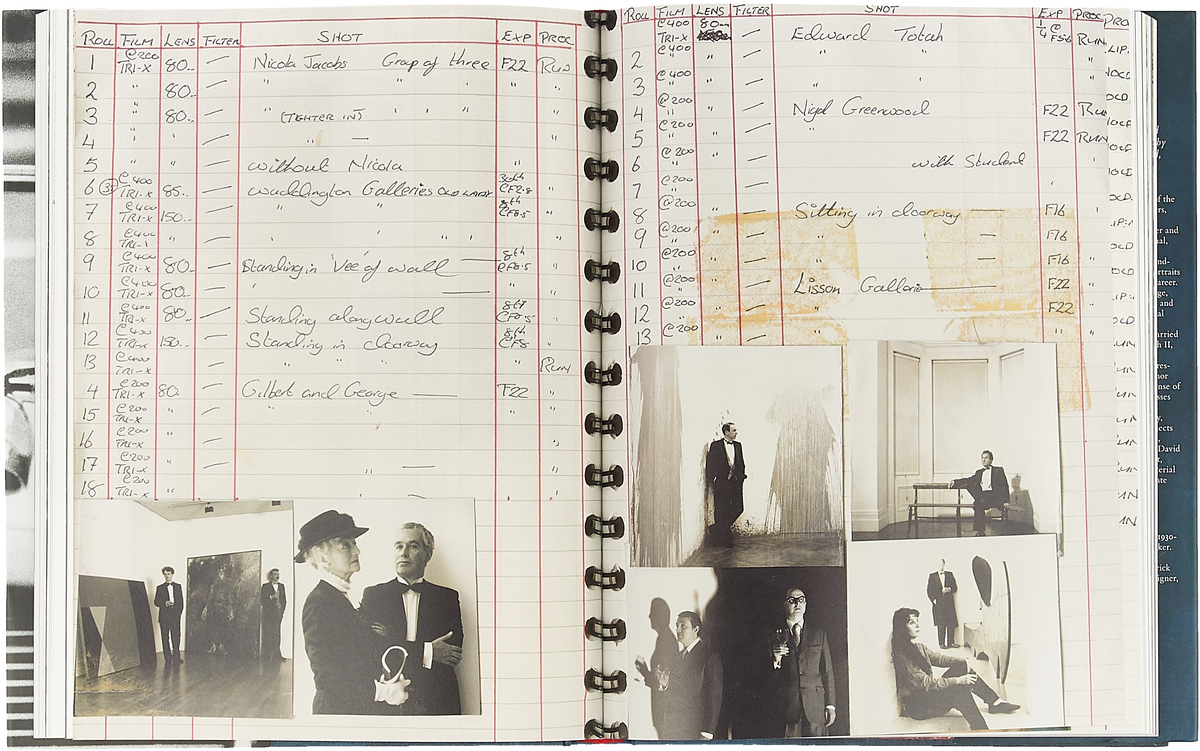 ROLL FILM LENS FILTER SHOT EXP PROC
1 @200 TRI-X 80.. — Nicola Jacobs Group of three F22 RUN
2 " 80.. — " " "
3 " 80.. — " (TIGHTER IN) " " " "
4 " " — " — "
5 " " — without Nicola "
6 @400 TRI-X 85.. — Waddington Galleries OLD LADY 30th @F2.8 "
7 @400 TRI-X 150.. — " " 8th @F8.5 "
8 @400 TRI-X " — " " " "
9 @400 TRI-X 80.. — Standing in 'Vee' of wall — 8th @F8.5 "
10 @400 TRI-X 80.. — " — "
11 @400 TRI-X 80.. — Standing along wall 8th @F8.5 "
12 @400 TRI-X 150.. — Standing in doorway 8th @F8 "
13 @400 TRI-X — " " RUN
4 @200 TRI-X 80. — Gilbert and George — F22 "
15 @200 TRI-X " — " "
16 @200 TRI-X " — "
17 @200 TRI-X " — " — "
18 @200 TRI-X "
ROLL FILM LENS FILTER SHOT EXP PROC
@400 TRI-X 80 — Edward Totah 1/4 @ F5.6 RUN
2 @400 " " — " "
3 @400 — " "
4 @200 " — Nigel Greenwood F22 RUN
5 @200 " — " F22 RUN
6 @200 " — with Student "
7 @200 — "
8 @200 " — Sitting in doorway — F16
9 @200 " — " — F16
10 @200 — " — F16
11 @200 " — Lisson Galleria — F22
12 @200 " — " F22
13 @200 — " "